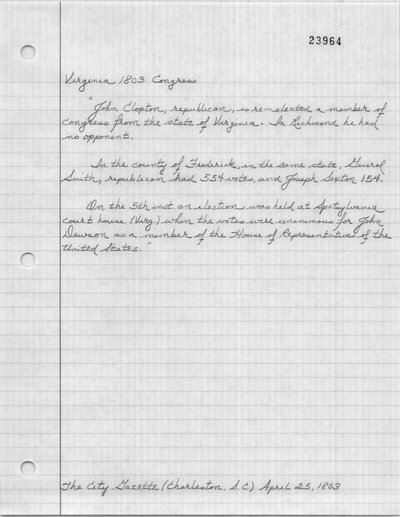 23964
Virginia 1803 Congress
"John Clopton, republican, is re-elected a member of
Congress from the state of Virginia. In Richmond he had
no opponent.
In the county of Frederick, in the same state, General
Smith, republican had 554 votes, and Joseph Sexton 154.
On the 5th inst an election was held at Spotsylvania
court house, (Virg.) when the votes were unanimous for John
Dawson as a member of the House of Representatives of the
United States."
The City Gazette (Charleston, S.C) April 25, 1803